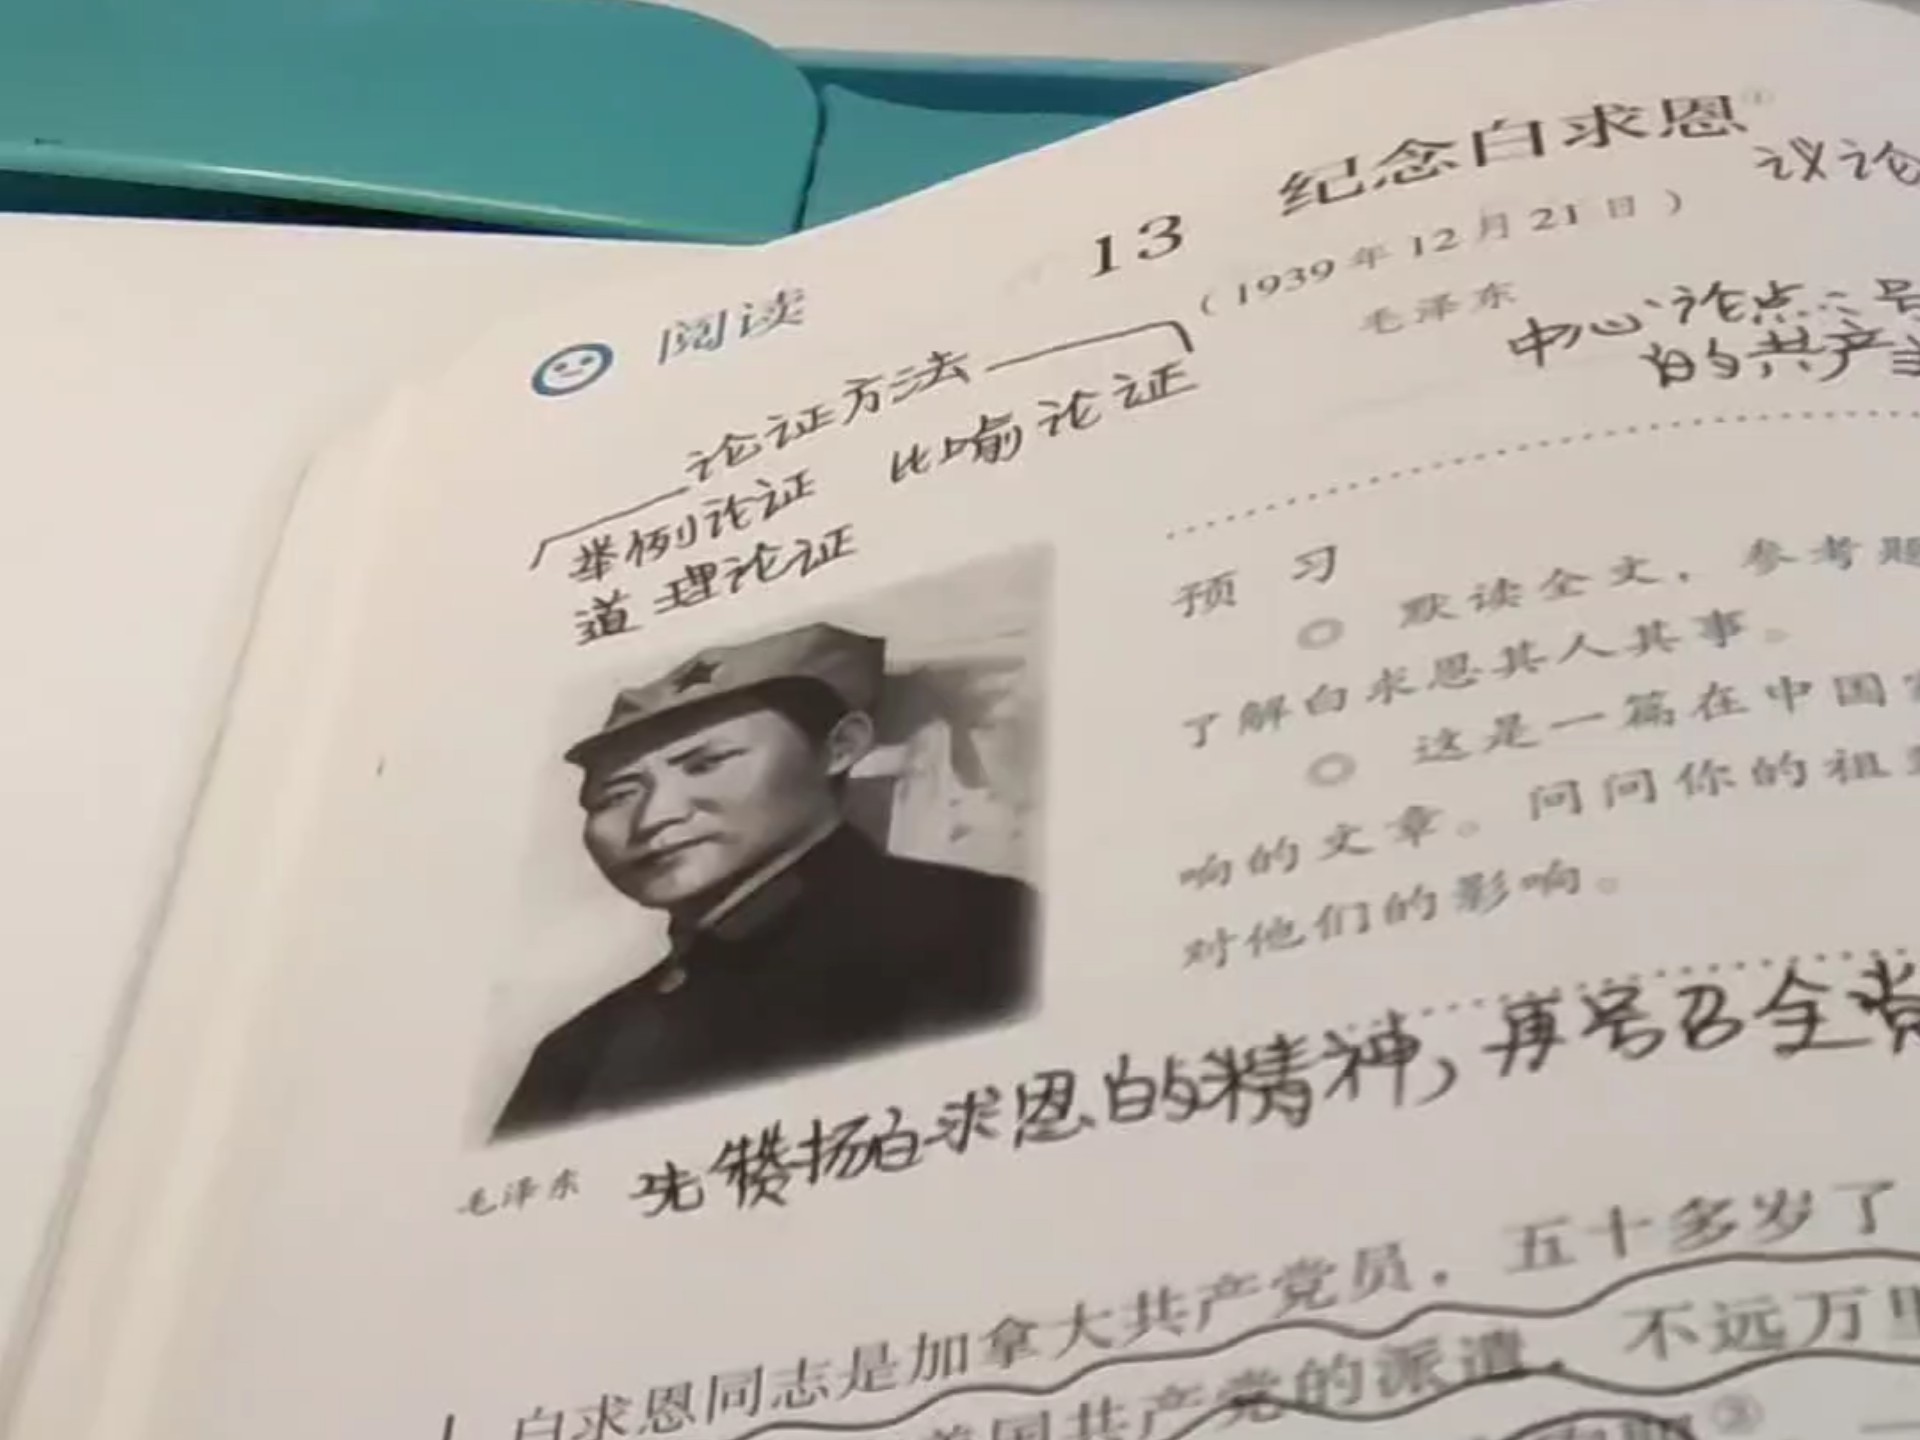 13 纪念白求恩①
议论
（1939年12月21日）
毛泽东
阅读
中心论点：号
的共产
论证方法
举例论证 比喻论证
道理论证
预 习
◎ 默读全文，参考题
了解白求恩其人其事。
◎ 这是一篇在中国
响的文章。问问你的祖
对他们的影响。
先赞扬白求恩的精神，再号召全党
毛泽东
1 白求恩同志是加拿大共产党员，五十多岁了
美国共产党的派遣，不远万里